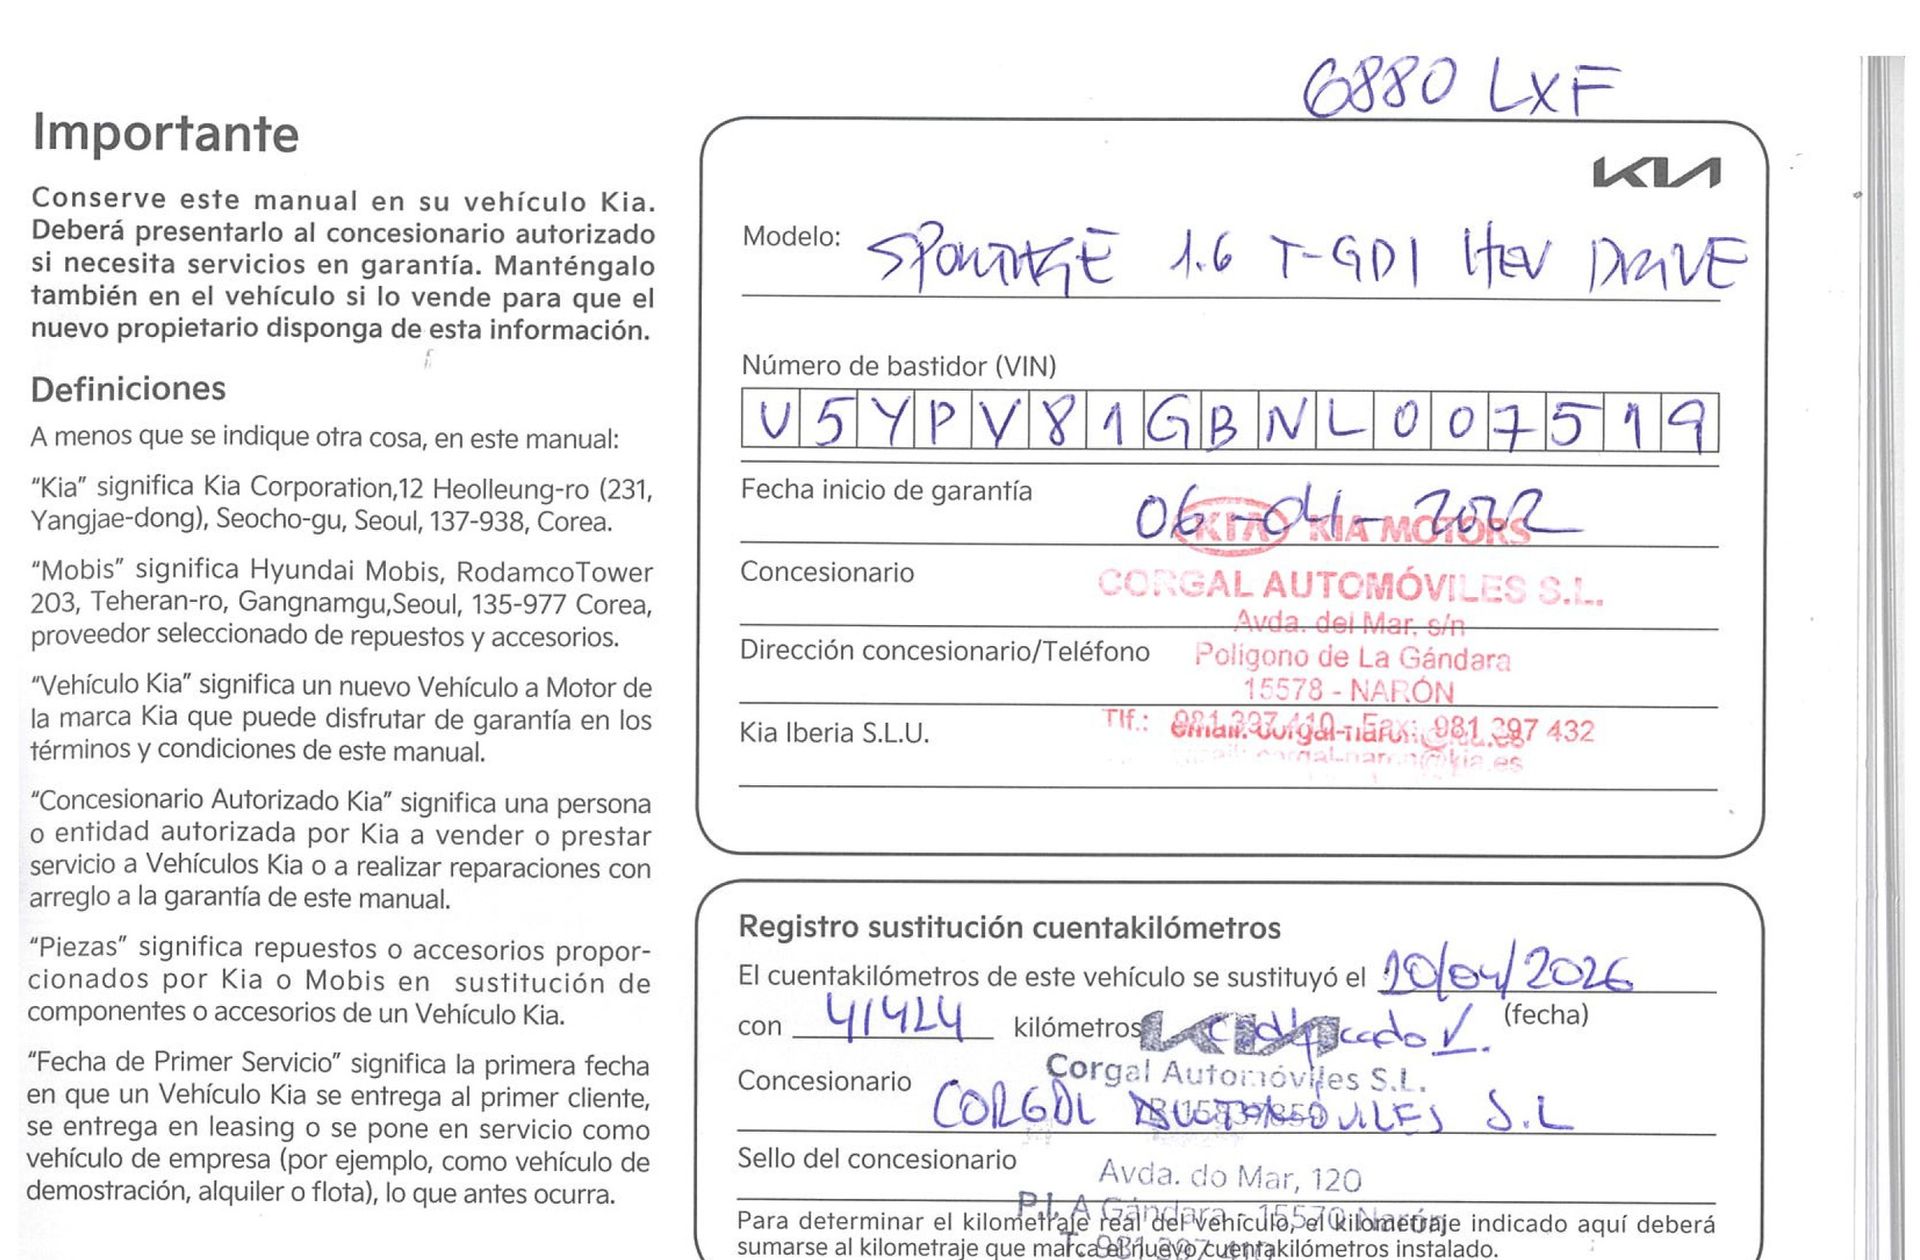 6880 LXF
Importante
Conserve este manual en su vehículo Kia.
Deberá presentarlo al concesionario autorizado
si necesita servicios en garantía. Manténgalo
también en el vehículo si lo vende para que el
nuevo propietario disponga de esta información.
Definiciones
A menos que se indique otra cosa, en este manual:
“Kia” significa Kia Corporation,12 Heolleung-ro (231,
Yangjae-dong), Seocho-gu, Seoul, 137-938, Corea.
“Mobis” significa Hyundai Mobis, RodamcoTower
203, Teheran-ro, Gangnamgu,Seoul, 135-977 Corea,
proveedor seleccionado de repuestos y accesorios.
“Vehículo Kia” significa un nuevo Vehículo a Motor de
la marca Kia que puede disfrutar de garantía en los
términos y condiciones de este manual.
“Concesionario Autorizado Kia” significa una persona
o entidad autorizada por Kia a vender o prestar
servicio a Vehículos Kia o a realizar reparaciones con
arreglo a la garantía de este manual.
“Piezas” significa repuestos o accesorios propor-
cionados por Kia o Mobis en sustitución de
componentes o accesorios de un Vehículo Kia.
“Fecha de Primer Servicio” significa la primera fecha
en que un Vehículo Kia se entrega al primer cliente,
se entrega en leasing o se pone en servicio como
vehículo de empresa (por ejemplo, como vehículo de
demostración, alquiler o flota), lo que antes ocurra.
KIA
Modelo: SPORTAGE 1.6 T-GDI HEV DRIVE
Número de bastidor (VIN)
U5YPV81GBNL007519
Fecha inicio de garantía 06-04-2022
KIA KIA MOTORS
Concesionario CORGAL AUTOMÓVILES S.L.
Avda. del Mar, s/n
Dirección concesionario/Teléfono Polígono de La Gándara
15578 - NARÓN
Kia Iberia S.L.U. Tlf.: 981 397 410 - Fax: 981 397 432
email: corgal-naron@kia.es
Registro sustitución cuentakilómetros
El cuentakilómetros de este vehículo se sustituyó el 20/04/2026
(fecha)
con 41424 kilómetros
KIA
Corgal Automóviles S.L.
Concesionario CORGAL AUTOMOVILES S.L
Sello del concesionario Avda. do Mar, 120
P.I. A Gándara - 15570 Narón
Para determinar el kilometraje real del vehículo, el kilometraje indicado aquí deberá
sumarse al kilometraje que marca el nuevo cuentakilómetros instalado.